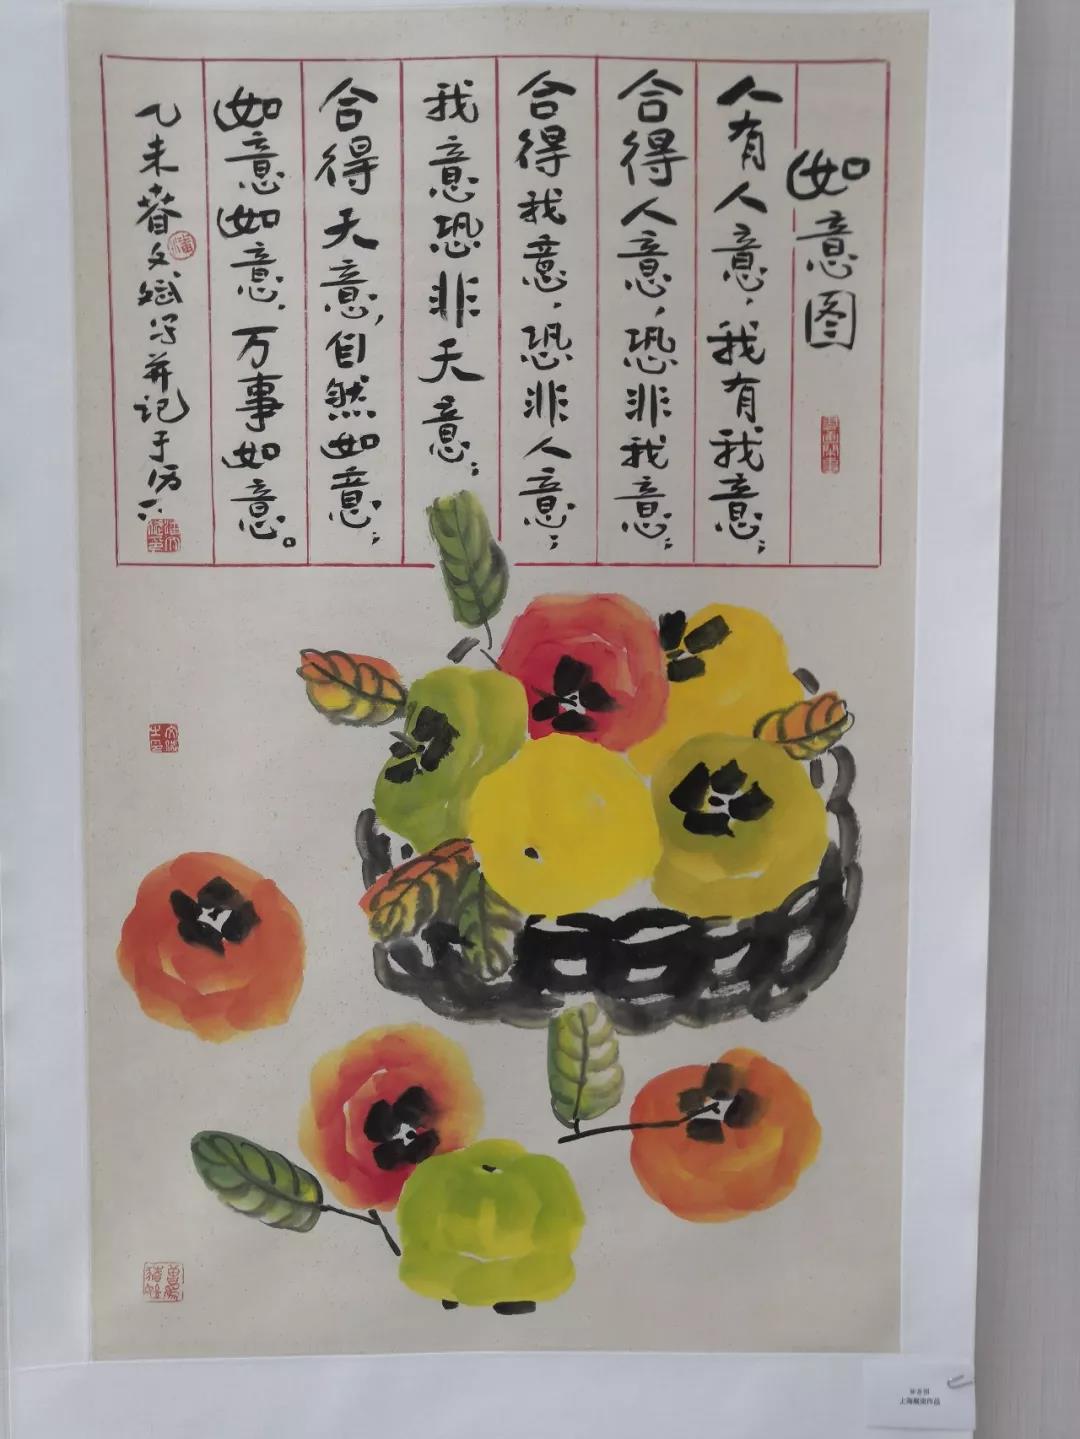 如意图
人有人意，我有我意；
合得人意，恐非我意；
合得我意，恐非人意；
我意恐非天意；
合得天意，自然如意；
如意如意，万事如意。
乙未春文斌写并记于
上海戴滨作品